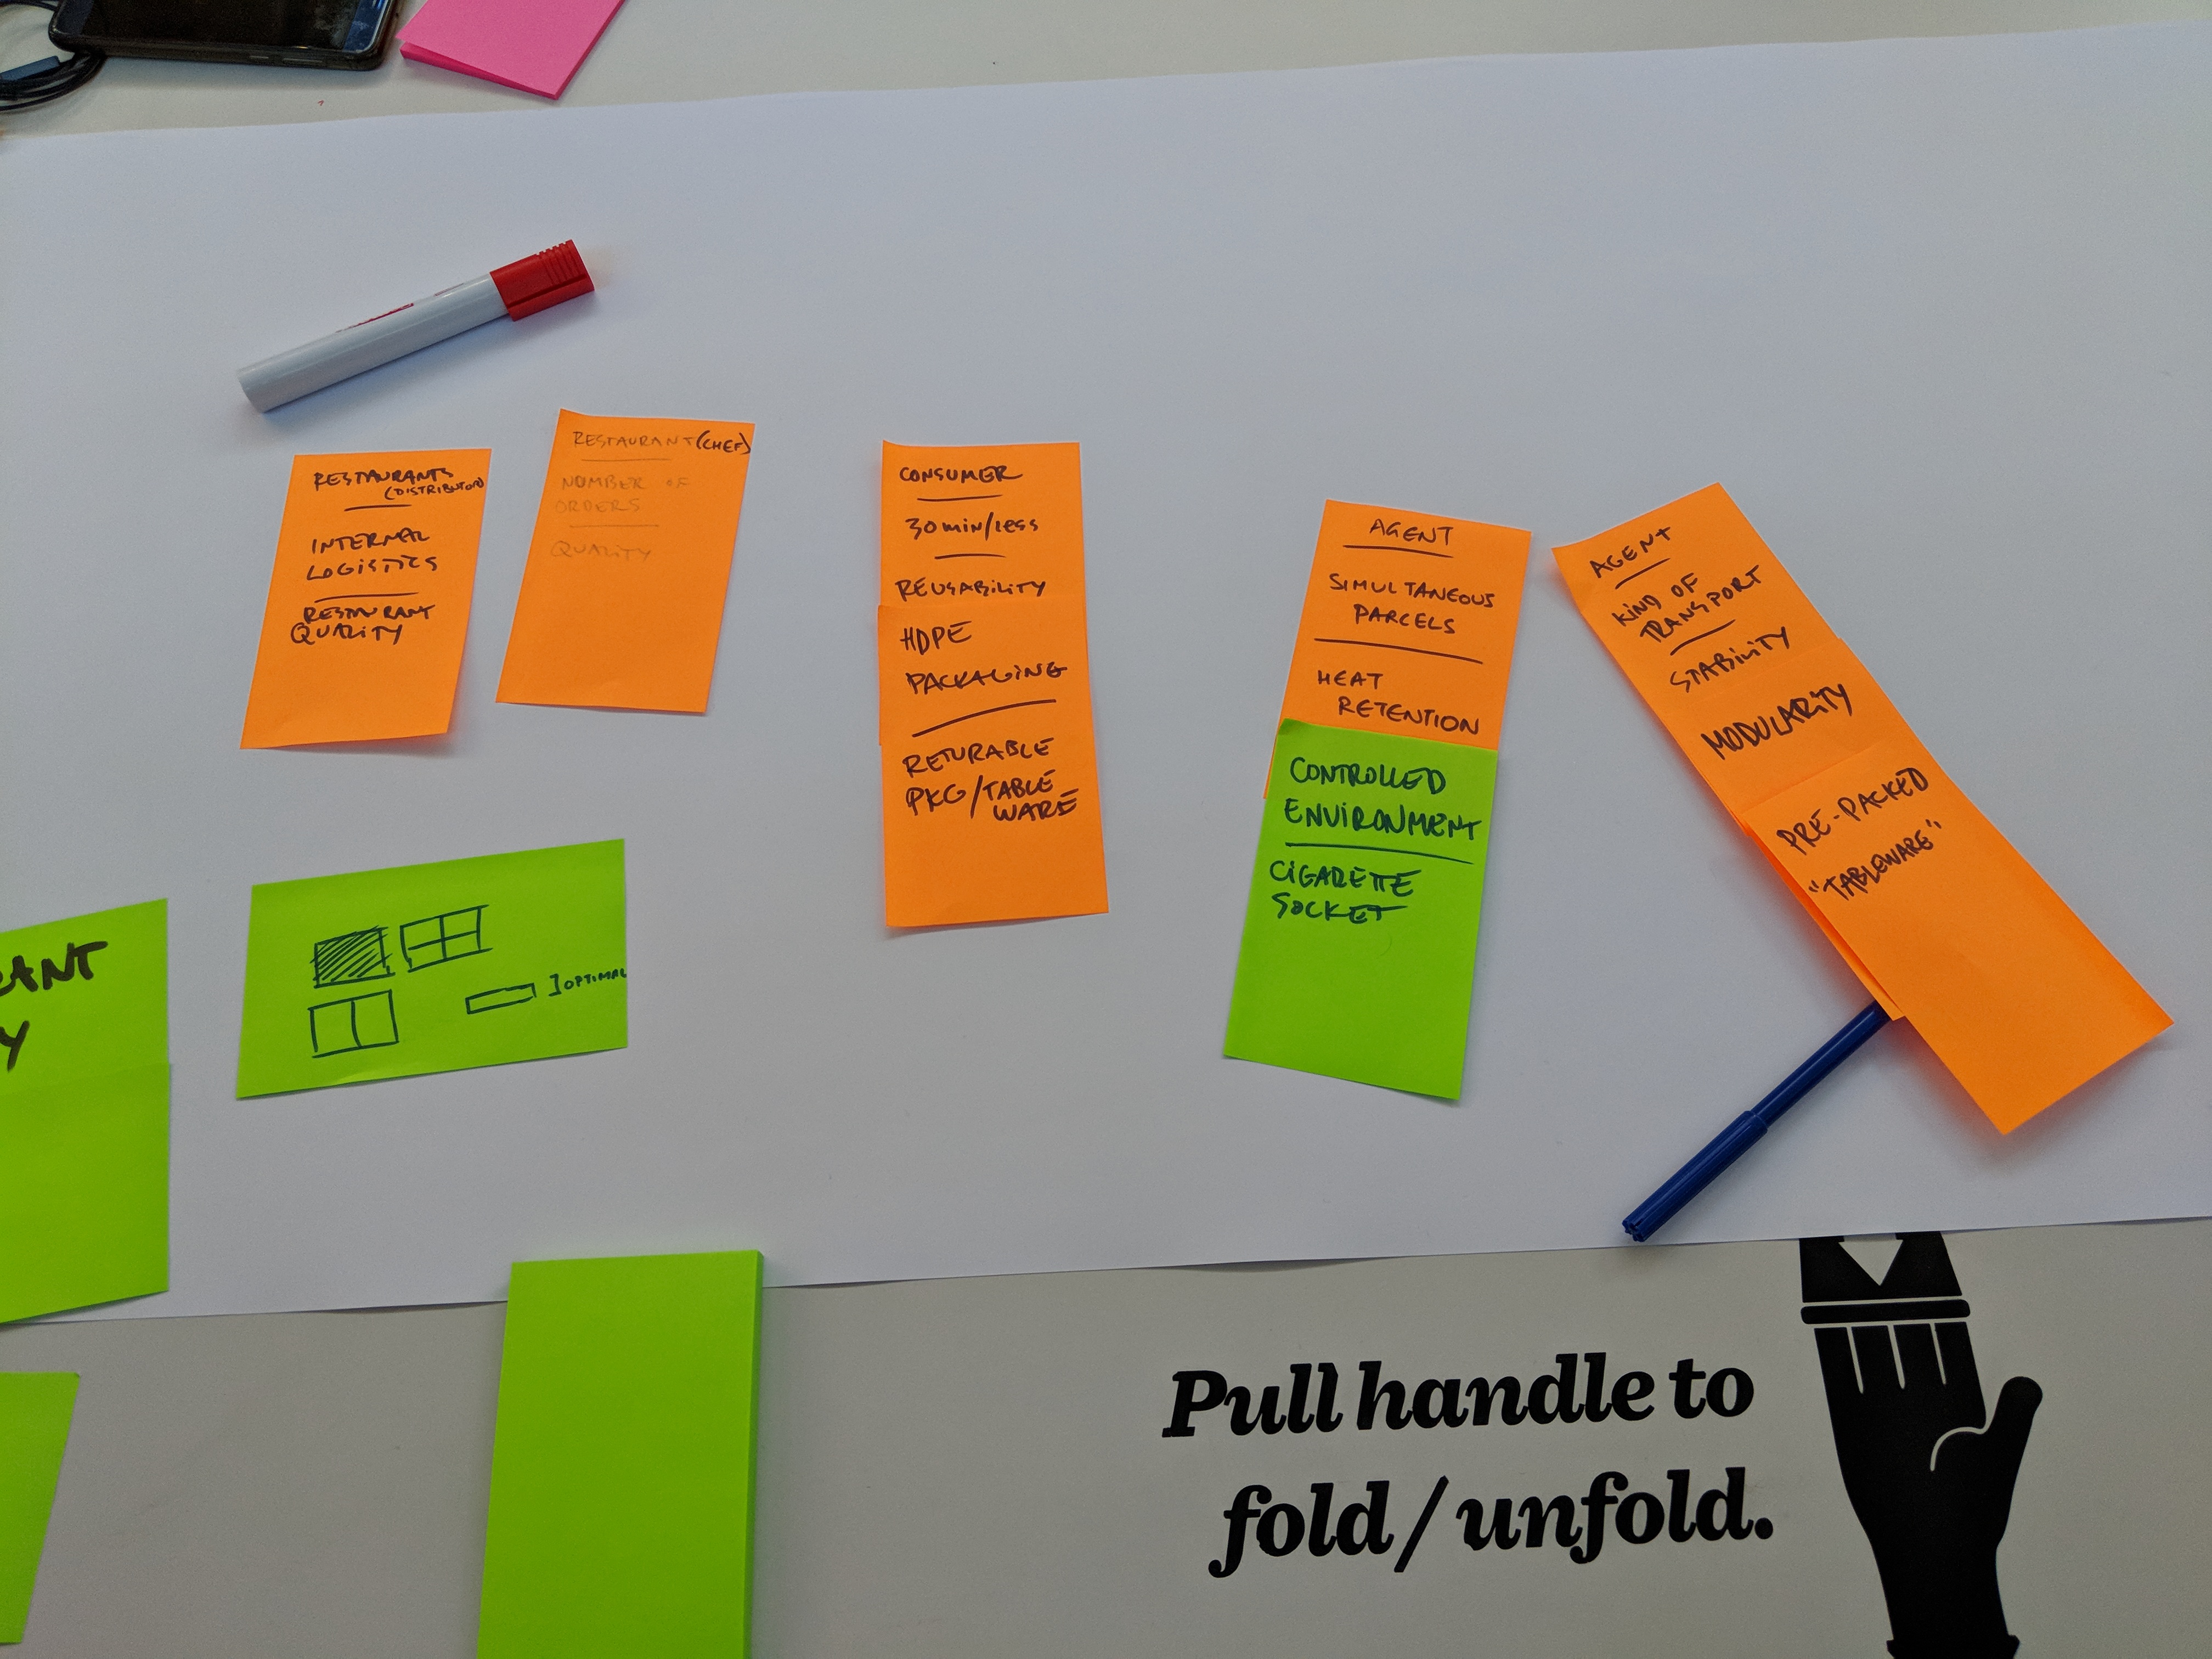 RESTAURANTS
(DISTRIBUTOR)
INTERNAL
LOGISTICS
RESTAURANT
QUALITY
RESTAURANT (CHEF)
NUMBER OF
ORDERS
QUALITY
CONSUMER
30min/less
REUSABILITY
HDPE
PACKAGING
RETURABLE
PKG/TABLE
WARE
AGENT
SIMULTANEOUS
PARCELS
HEAT
RETENTION
CONTROLLED
ENVIRONMENT
CIGARETTE
SOCKET
AGENT
KIND OF
TRANSPORT
STABILITY
MODULARITY
PRE-PACKED
"TABLEWARE"
ANT
Y
]OPTIMAL
Pull handle to
fold/unfold.